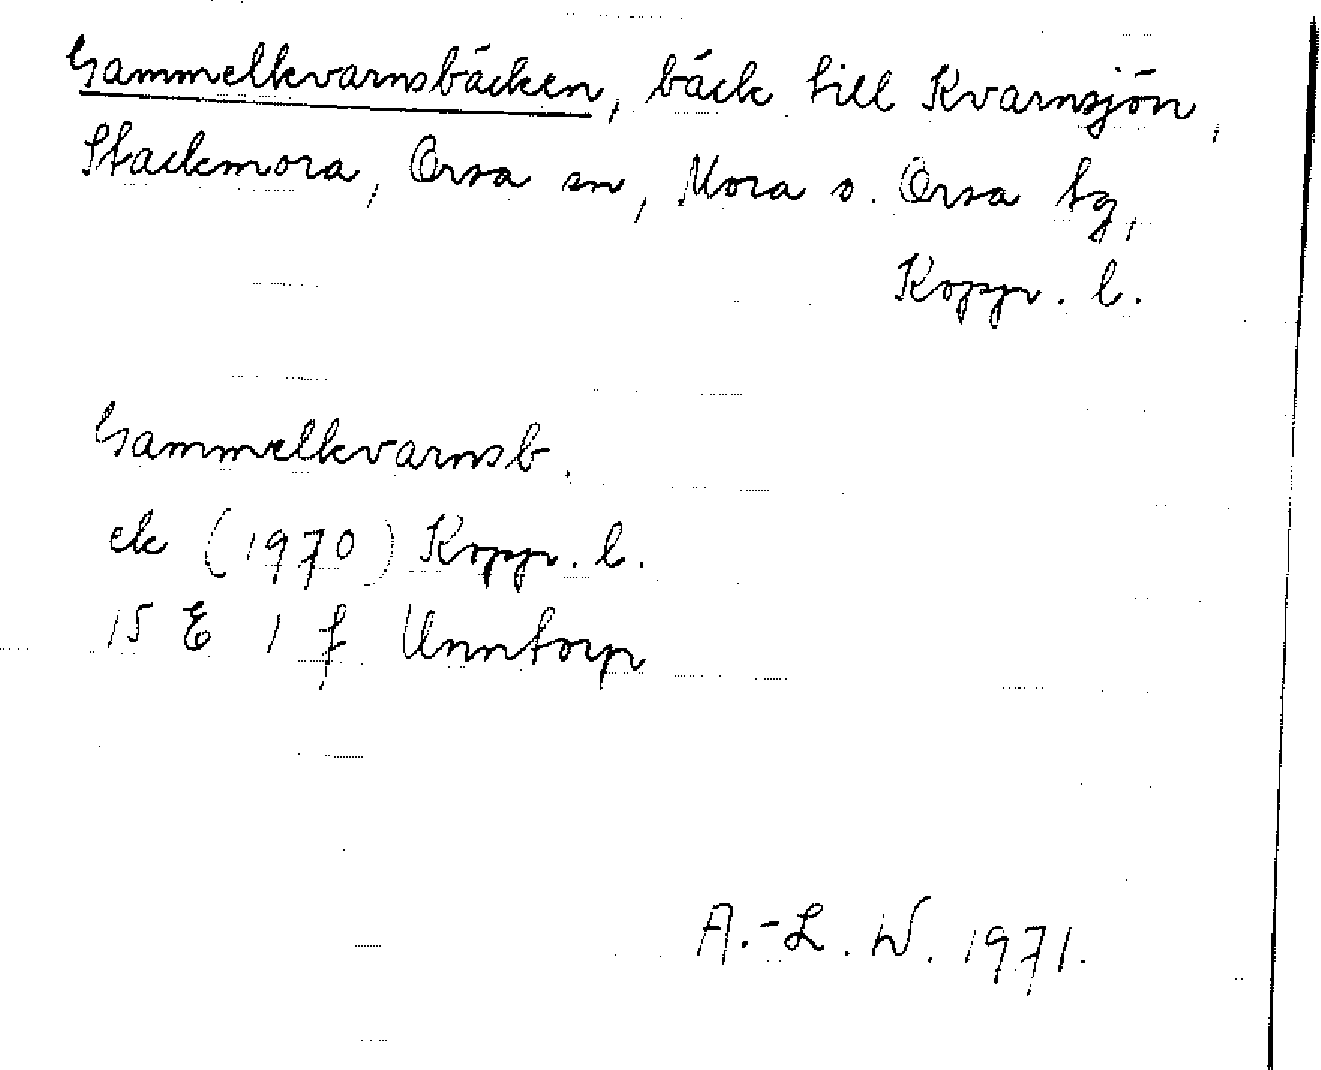 Gammelkvarnsbäcken, bäck till Kvarnsjön,
Stackmora, Orsa sn, Mora o. Orsa tg,
Kopp. l.
Gammelkvarnsb.
ek (1970) Kopp. l.
15 E 1 f Unntorp
A.-L. W. 1971.